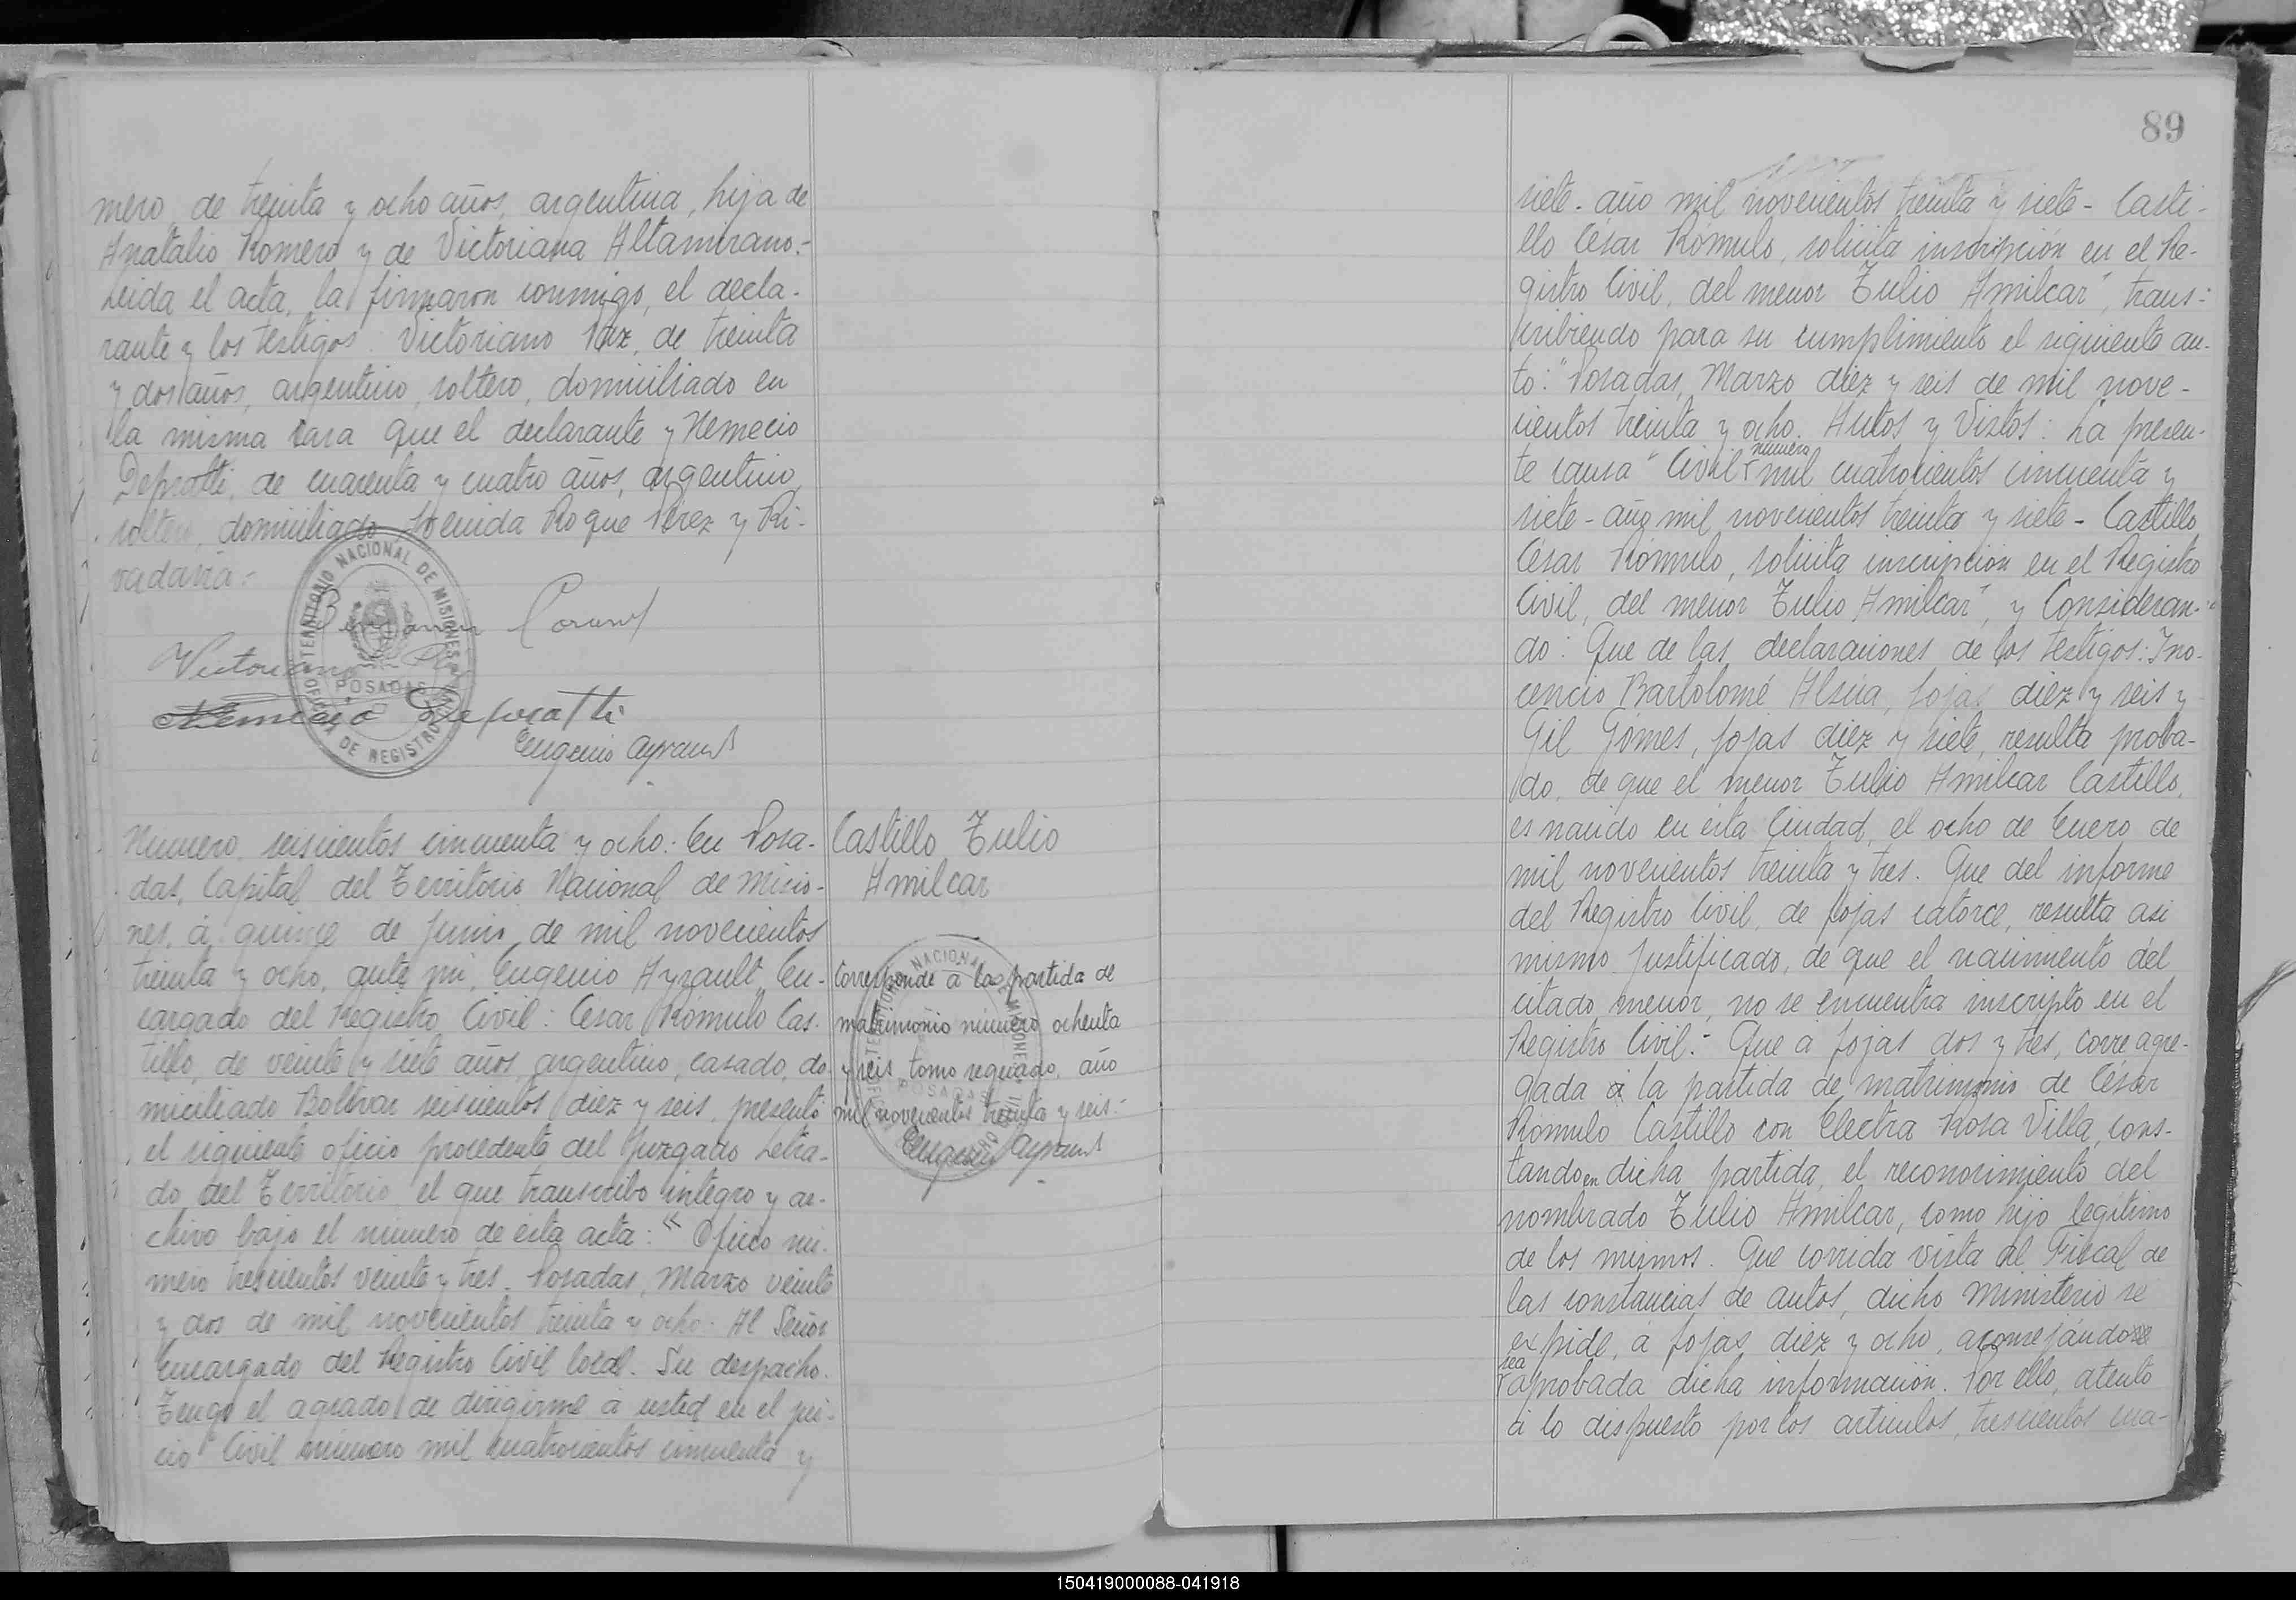 mero, de treinta y ocho años, argentina, hija de
Anatalio Romero y de Victoriana Altamirano.-
Leida el acta, la firmaron conmigo, el decla-
rante y los testigos: Victoriano Paz, de treinta
y dos años, argentino, soltero, domiciliado en
la misma casa que el declarante y Nemecio
Depratti, de cuarenta y cuatro años, argentino,
soltero, domiciliado Avenida Roque Pérez y Ri-
vadavia.-
OFICINA DE REGISTRO CIVIL
TERRITORIO NACIONAL DE MISIONES
POSADAS
Victoriano
Nemecio Depratti
Eugenio Ayrault
Número seiscientos cincuenta y ocho: En Posa-
das, Capital del Territorio Nacional de Misio-
nes, á quince de Junio de mil novecientos
treinta y ocho, ante mi, Eugenio Ayrault, En-
cargado del Registro Civil: César Rómulo Cas-
tillo, de veinte y siete años, argentino, casado, do-
miciliado Bolívar seiscientos diez y seis, presentó
el siguiente oficio procedente del Juzgado Letra-
do del Territorio, el que transcribo integro y ar-
chivo bajo el número de ésta acta: "Oficio nú-
mero trescientos veinte y tres. Posadas, Marzo veinte
y dos de mil novecientos treinta y ocho. Al Señor
Encargado del Registro Civil local. Su despacho.
Tengo el agrado de dirigirme á usted en el jui-
cio "Civil número mil cuatrocientos cincuenta y
Castillo Tulio
Amilcar
Corresponde a la partida de
matrimonio número ochenta
y seis tomo segundo, año
mil novecientos treinta y seis.-
Eugenio Ayrault
89
siete- año mil novecientos treinta y siete- Casti-
llo César Rómulo, solicita inscripción en el Re-
gistro Civil, del menor Tulio Amilcar", trans-
cribiendo para su cumplimiento el siguiente au-
to: "Posadas, Marzo diez y seis de mil nove-
cientos treinta y ocho. Autos y Vistos: La presen-
te causa "Civil número mil cuatrocientos cincuenta y
siete- año mil novecientos treinta y siete- Castillo
César Rómulo, solicita inscripción en el Registro
Civil, del menor Tulio Amilcar", y Consideran-
do: Que de las declaraciones de los testigos: Ino-
cencio Bartolomé Alsúa, fojas diez y seis y
Gil Gómes, fojas diez y siete, resulta proba-
do, de que el menor Tulio Amilcar Castillo,
es nacido en ésta Ciudad, el ocho de Enero de
mil novecientos treinta y tres. Que del informe
del Registro Civil, de fojas catorce, resulta asi
mismo justificado, de que el nacimiento del
citado menor, no se encuentra inscripto en el
Registro Civil.- Que á fojas dos y tres, corre agre-
gada á la partida de matrimonio de César
Rómulo Castillo con Electra Rosa Villa, cons-
tando en dicha partida, el reconocimiento del
nombrado Tulio Amilcar, como hijo legítimo
de los mismos. Que corrida vista al Fiscal de
las constancias de autos, dicho Ministerio se
expide, á fojas diez y ocho, aconsejando
sea aprobada dicha información. Por ello, atento
á lo dispuesto por los artículos, trescientos cua-
150419000088-041918